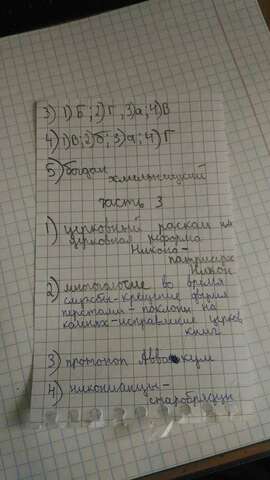 3) 1) Б; 2) Г, 3) а; 4) В
4) 1) В; 2) б; 3) а; 4) Г
5) богдан
хмельницкий
часть 3
1) церковный раскол или
церковная реформа
Никона -
патриарх
Никон
2) многоголосие во время
службы - крещение двумя
перстами - поклоны на
коленях - исправление церков
книг
3) протопоп Аввакум
4) никонианцы -
старообрядцы